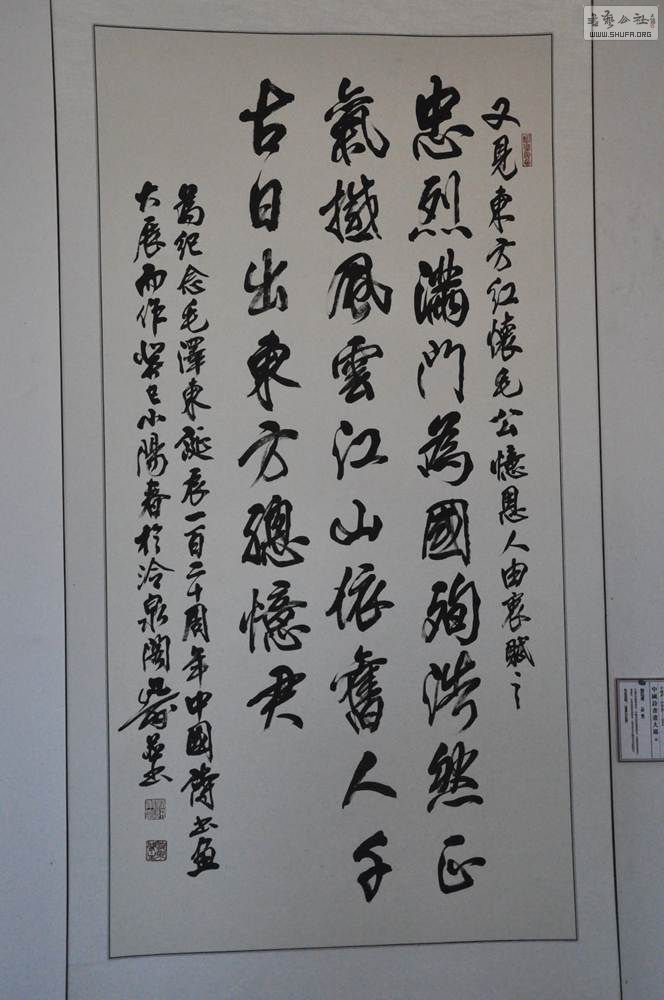 又見東方紅懷毛公憶恩人由衷賦之
忠烈滿門為國殉浩然正
氣撼風雲江山依舊人千
古日出東方總憶君
為紀念毛澤東誕辰一百二十周年中國詩書画
大展而作癸巳小陽春於冷泉閣
WWW.SHUFA.ORG